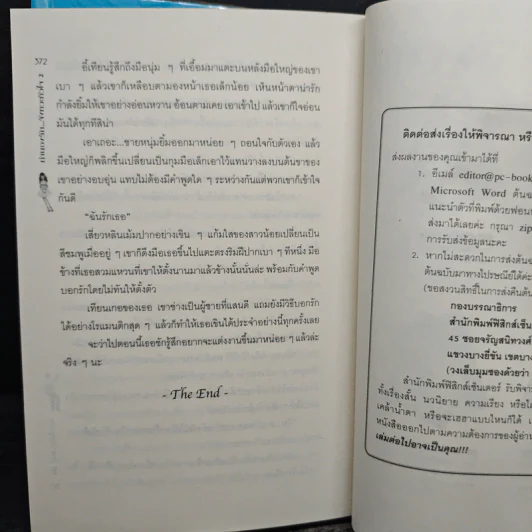 372
อี้เทียนรู้สึกถึงมือนุ่ม ๆ ที่เอื้อมมาแตะบนหลังมือใหญ่ของเขา
เบา ๆ แล้วเขาก็เหลือบตามองหน้าเธอเล็กน้อย เห็นหน้าตาน่ารัก
กำลังยิ้มให้เขาอย่างอ่อนหวาน อ้อนตามเคย เอาเข้าไป แล้วเขาก็ใจอ่อน
มันได้ทุกทีสิน่า
เอาเถอะ...ชายหนุ่มยิ้มออกมาหน่อย ๆ ถอนใจกับตัวเอง แล้ว
มือใหญ่ก็พลิกขึ้นเปลี่ยนเป็นกุมมือเล็กเอาไว้แทนวางลงบนต้นขาของ
เขาอย่างอบอุ่น แทบไม่ต้องมีคำพูดใด ๆ ระหว่างกันแต่พวกเขาก็เข้าใจ
กันดี
"ฉันรักเธอ"
เสี่ยวหลินเม้มปากอย่างเขิน ๆ แก้มใสของสาวน้อยเปลี่ยนเป็น
สีชมพูเมื่ออยู่ ๆ เขาก็ดึงมือเธอขึ้นไปแตะตรงริมฝีปากเบา ๆ ทีหนึ่ง มือ
ข้างที่เธอสวมแหวนที่เขาให้ตั้งนานมาแล้วข้างนั้นนั่นล่ะ พร้อมกับคำพูด
บอกรักโดยไม่ทันให้ตั้งตัว
เทียนเกอของเธอ เขาช่างเป็นผู้ชายที่แสนดี แถมยังมีวิธีบอกรัก
ได้อย่างโรแมนติกสุด ๆ แล้วก็ทำให้เธอเขินได้ประจำอย่างนี้ทุกครั้งเลย
จะว่าไปตอนนี้เธอชักรู้สึกอยากจะแต่งงานขึ้นมาหน่อย ๆ แล้วล่ะ
จริง ๆ นะ
- The End -
ติดต่อส่งเรื่องให้พิจารณา หรื
ส่งผลงานของคุณเข้ามาได้ที่
1. อีเมล์ editor@pc-book
Microsoft Word ต้นฉ
แนะนำตัวที่พิมพ์ด้วยฟอน
ส่งมาได้เลยค่ะ กรุณา zip
การรับส่งข้อมูลนะคะ
2. หากไม่สะดวกในการส่งต้นฉ
ต้นฉบับมาทางไปรษณีย์ได้ค่ะ
(ขอสงวนสิทธิ์ในการส่งคืนต้น
กองบรรณาธิการ
สำนักพิมพ์ฟิสิกส์เซ็น
45 ซอยจรัญสนิทวงศ์
แขวงบางยี่ขัน เขตบาง
(วงเล็บมุมซองด้วยว่า
สำนักพิมพ์ฟิสิกส์เซ็นเตอร์ รับพิจาร
ทั้งเรื่องสั้น นวนิยาย ความเรียง หรือไ
เคล้าน้ำตา หรือจะเฮฮาแบบไหนก็ได้ เ
หนังสือออกไปตามความต้องการของผู้อ่าน
เล่มต่อไปอาจเป็นคุณ!!!